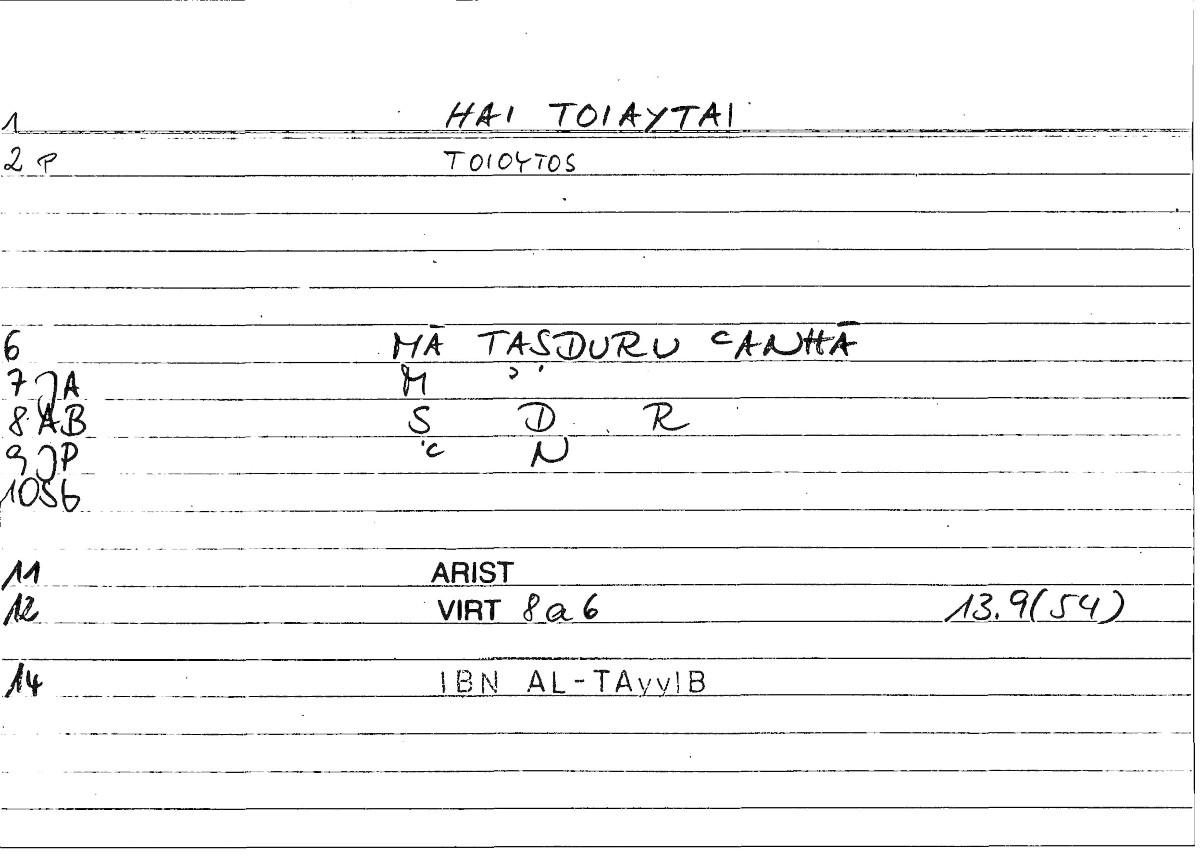 1 HAI TOIAYTAI
2 P TOIOYTOS
6 MĀ TAṢDURU ʿANHĀ
7 JA M ʾ
8 AB Ṣ D R
9 JP ʿ N
10 SG
11 ARIST
12 VIRT 8a6 13.9(54)
14 IBN AL-TAyyIB